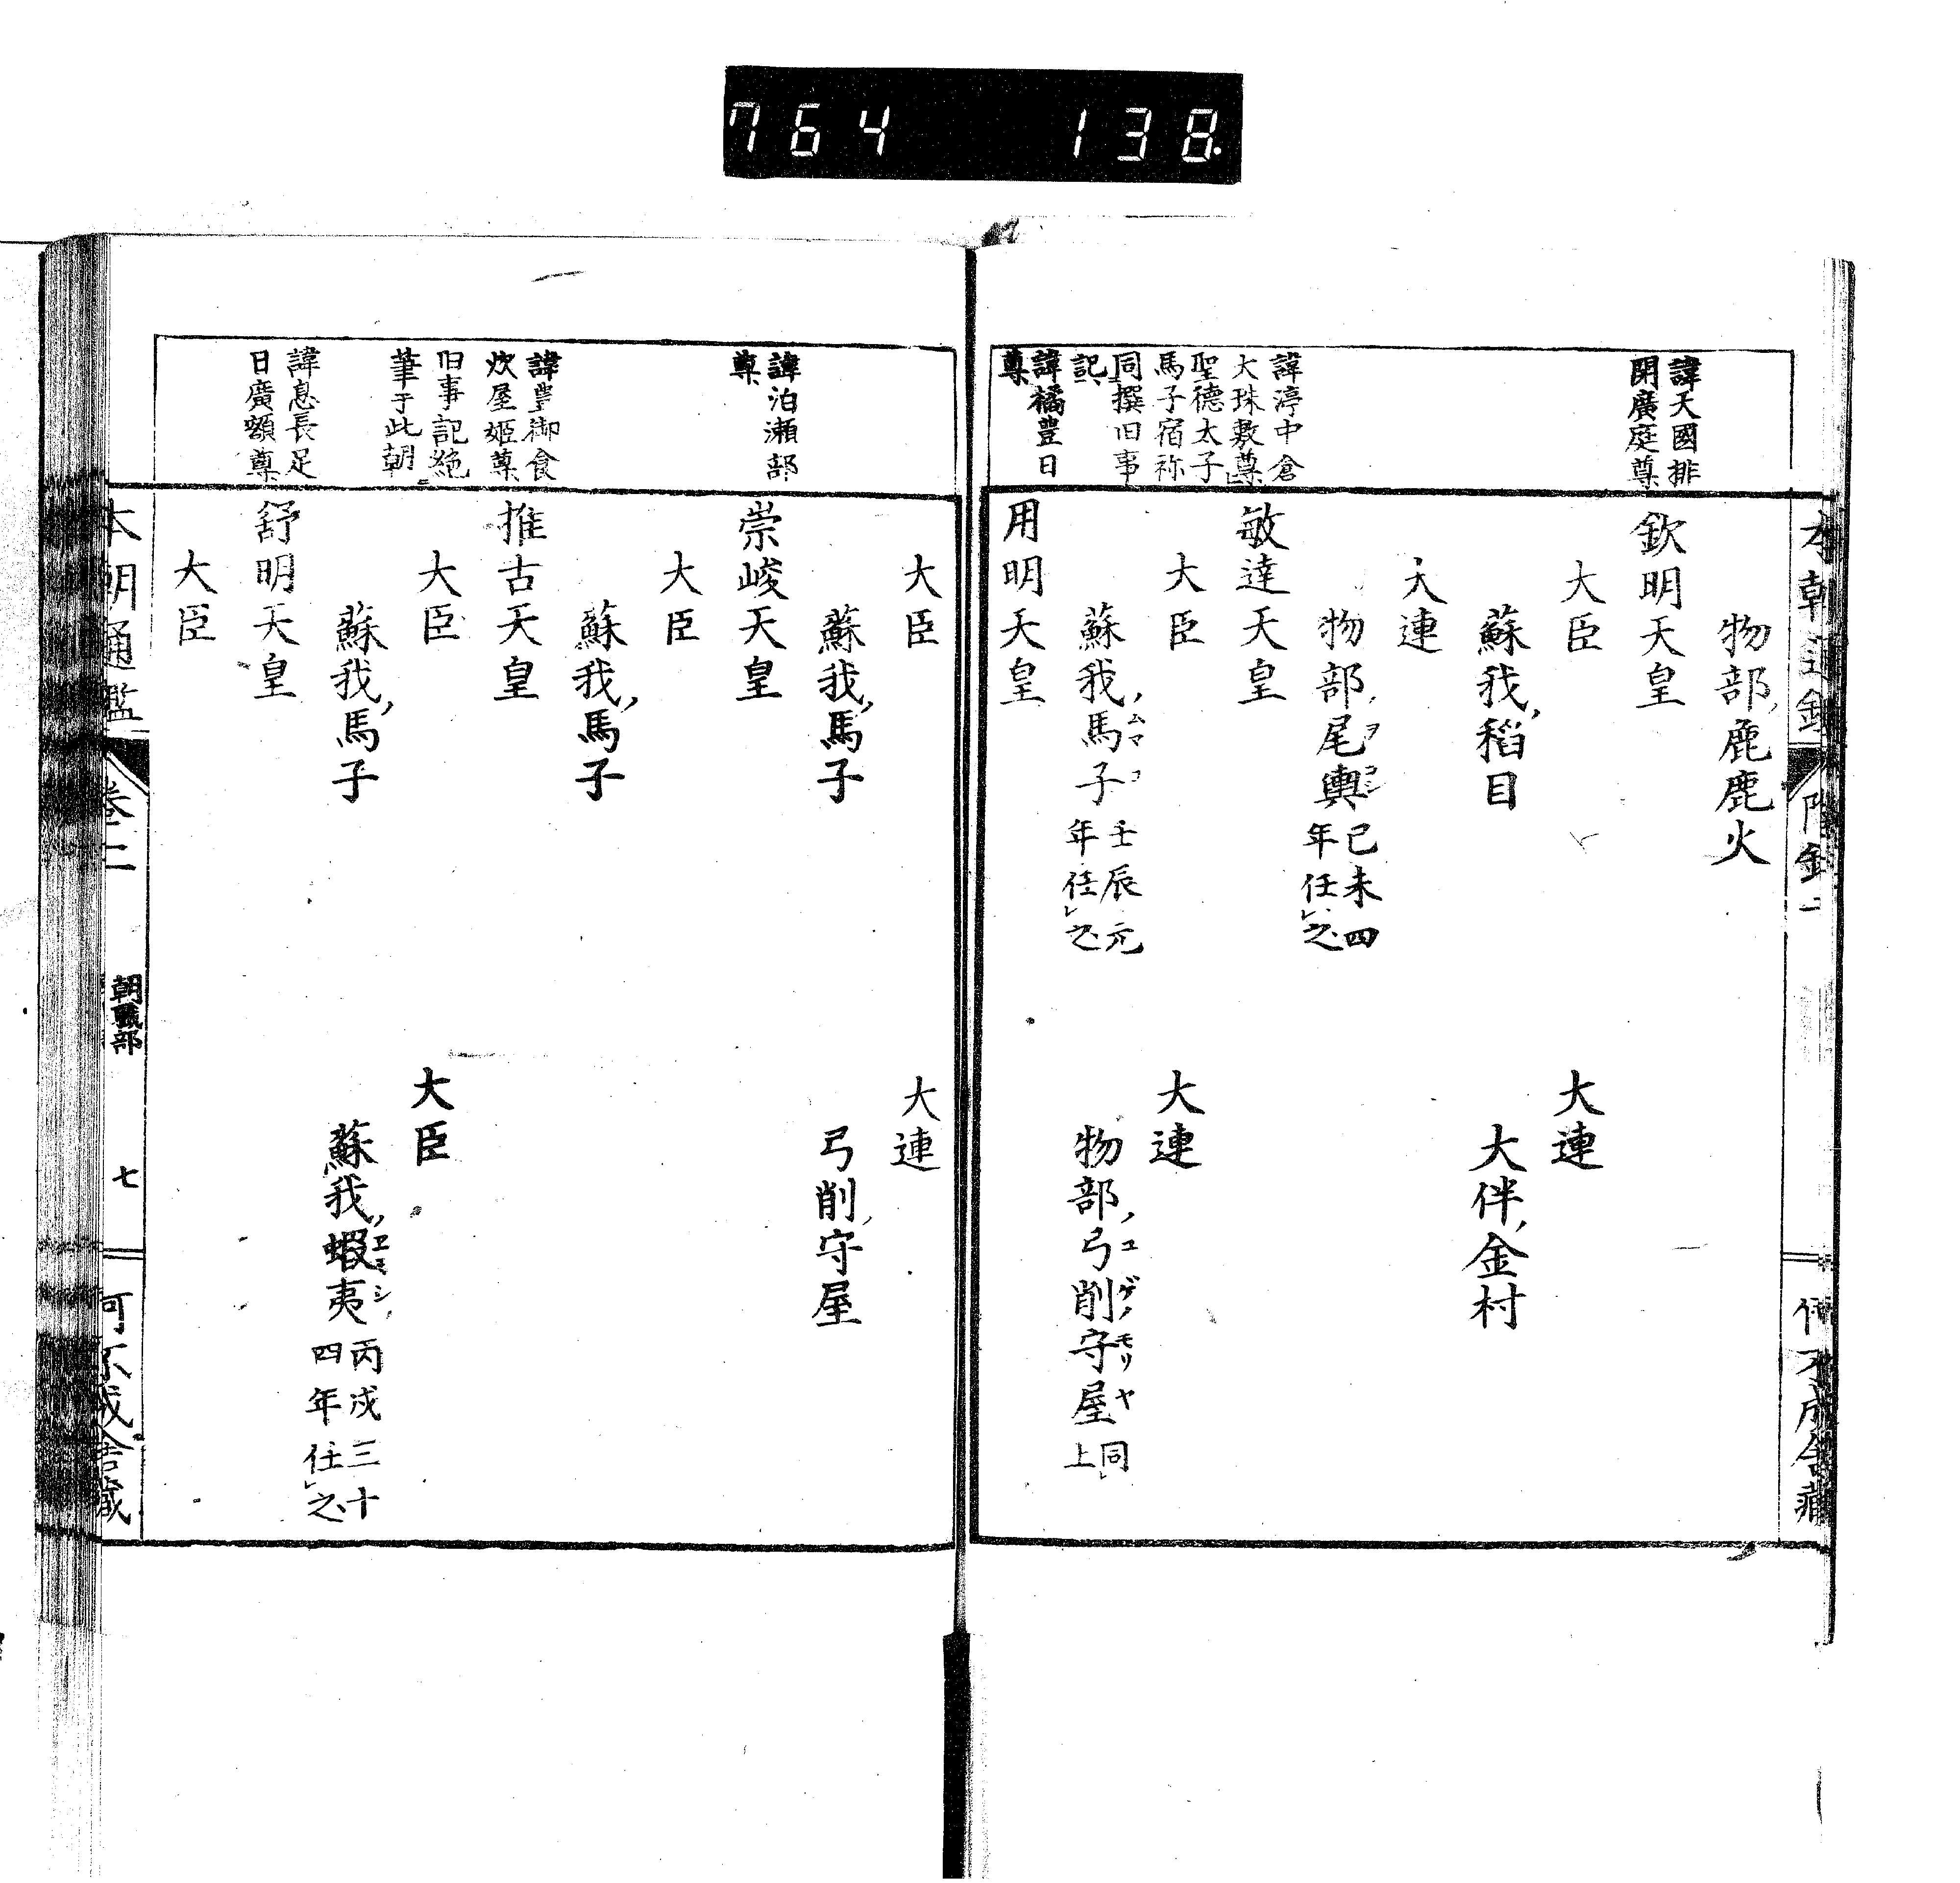 764 138.
諱天國排
開廣庭尊
諱渟中倉
大珠敷尊
聖德太子
馬子宿祢
同撰旧事
記
諱橘豊日
尊
物部ノ鹿鹿火
欽明天皇
大臣
大連
蘇我ノ稻目
大伴ノ金村
大連
物部ノ尾輿 己未四年任レ之
敏達天皇
大臣
大連
蘇我ノ馬子 壬辰元年任レ之
物部ノ弓削守屋 同上
用明天皇
諱泊瀬部
尊
諱豊御食
炊屋姬尊
旧事記絶
筆于此朝
諱息長足
日廣額尊
大臣
大連
蘇我ノ馬子
弓削ノ守屋
崇峻天皇
大臣
蘇我ノ馬子
推古天皇
大臣
大臣
蘇我ノ馬子
蘇我ノ蝦夷 丙戌三十四年任レ之
舒明天皇
大臣
本朝通鑑
卷二
朝職部
七